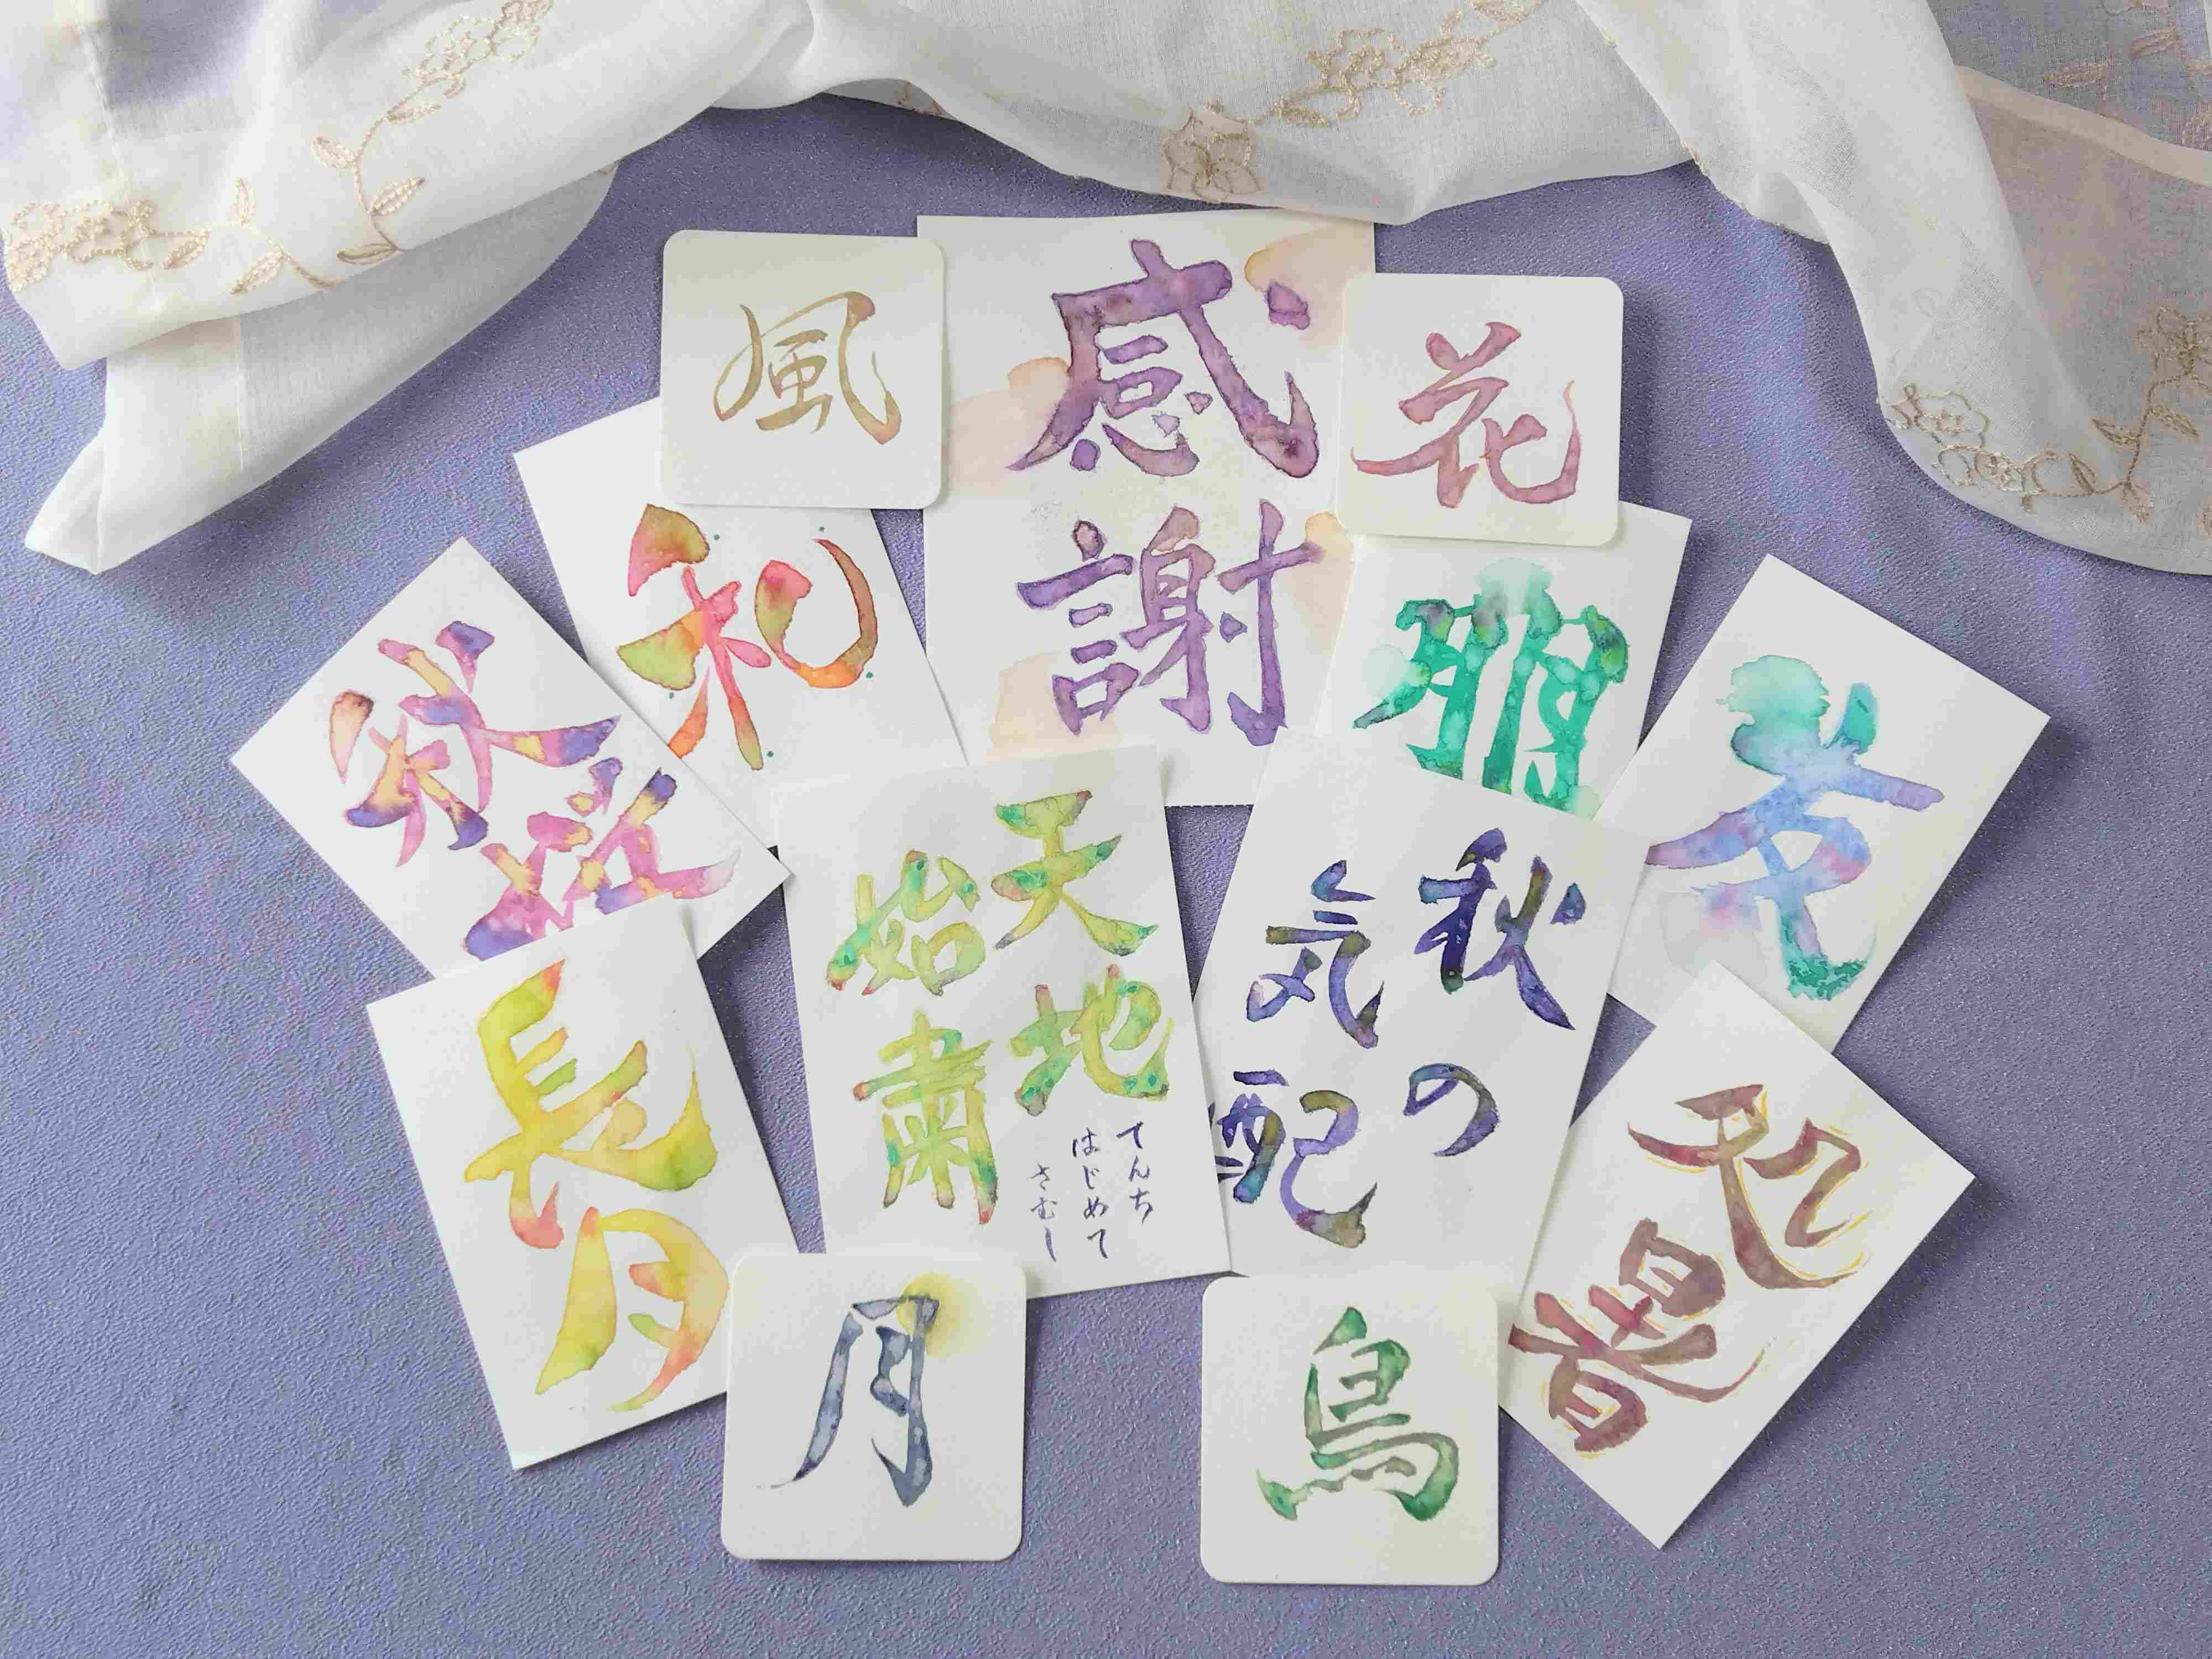 風
感謝
花
和
秋桜
天地
始粛
てんち
はじめて
さむし
秋の
気配
長月
月
鳥